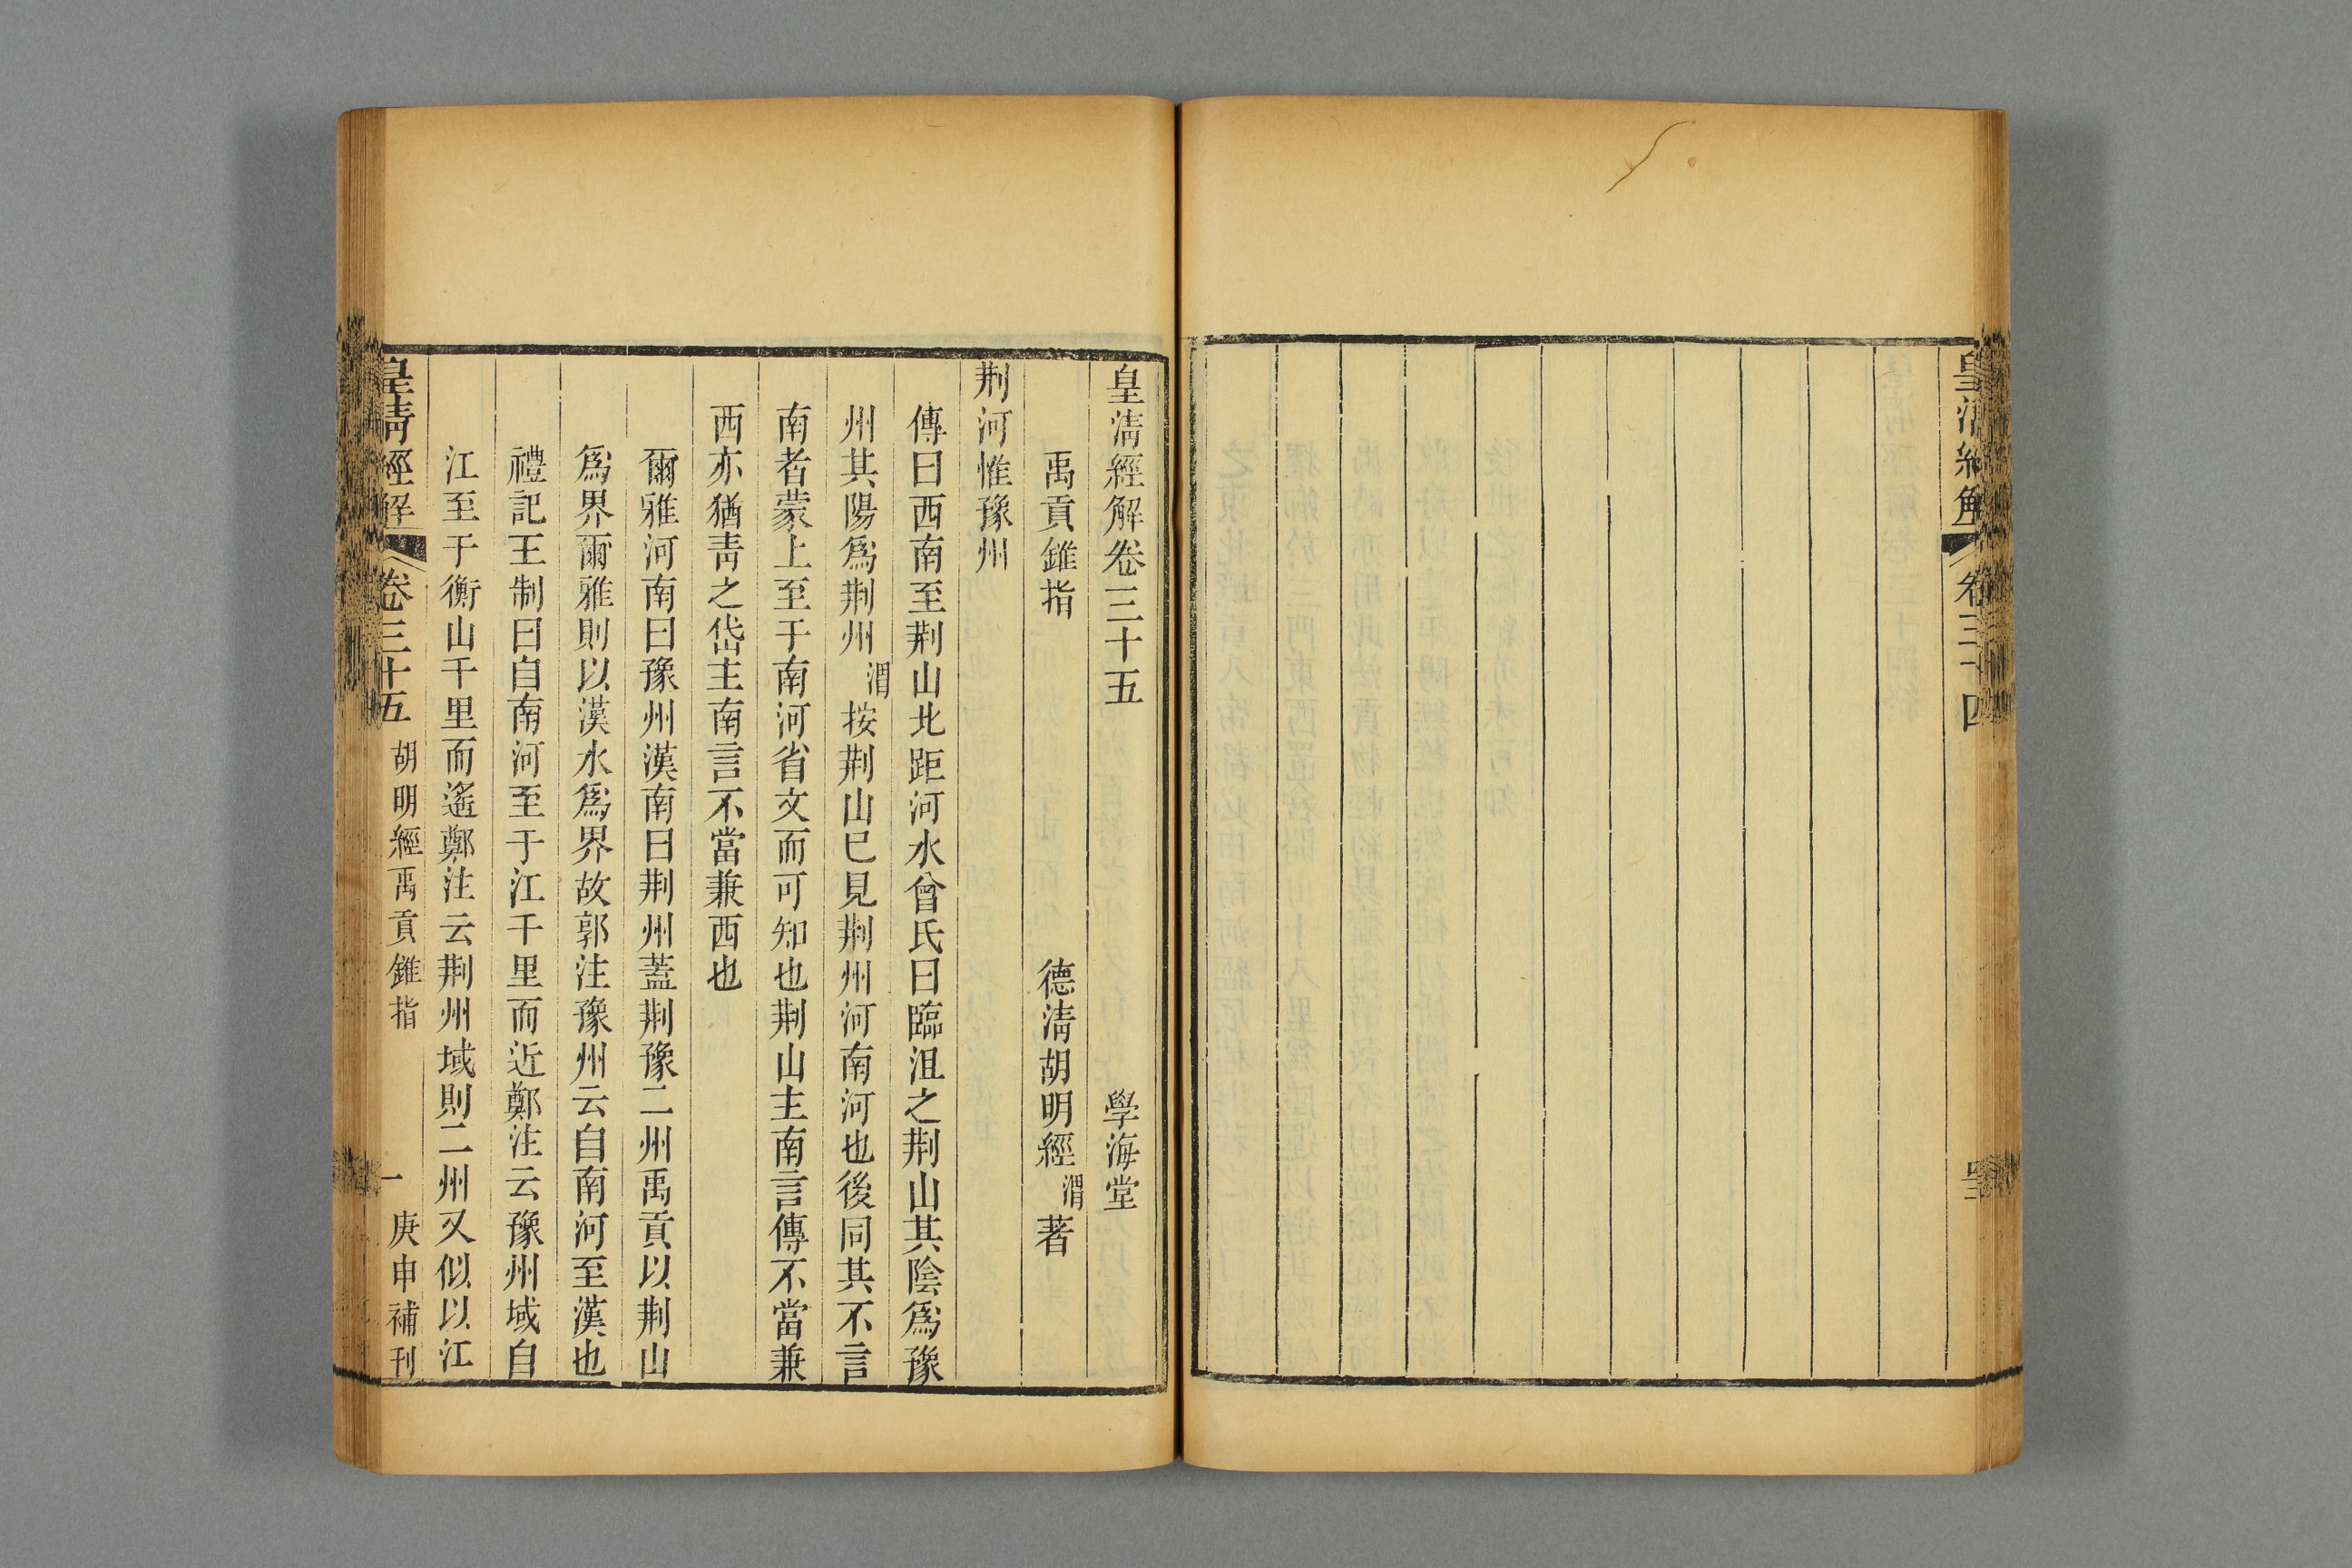 皇清經解
卷三十四
皇清經解卷三十五
學海堂
禹貢錐指
德清胡明經渭著
荆河惟豫州
傳曰西南至荆山北距河水曾氏曰臨沮之荆山其陰爲豫
州其陽爲荆州渭按荆山已見荆州河南河也後同其不言
南者蒙上至于南河省文而可知也荆山主南言傳不當兼
西亦猶靑之岱主南言不當兼西也
爾雅河南曰豫州漢南曰荆州蓋荆豫二州禹貢以荆山
爲界爾雅則以漢水爲界故郭注豫州云自南河至漢也
禮記王制曰自南河至于江千里而近鄭注云豫州域自
江至于衡山千里而遙鄭注云荆州域則二州又似以江
皇清經解
卷三十五
胡明經禹貢錐指
一
庚申補刊